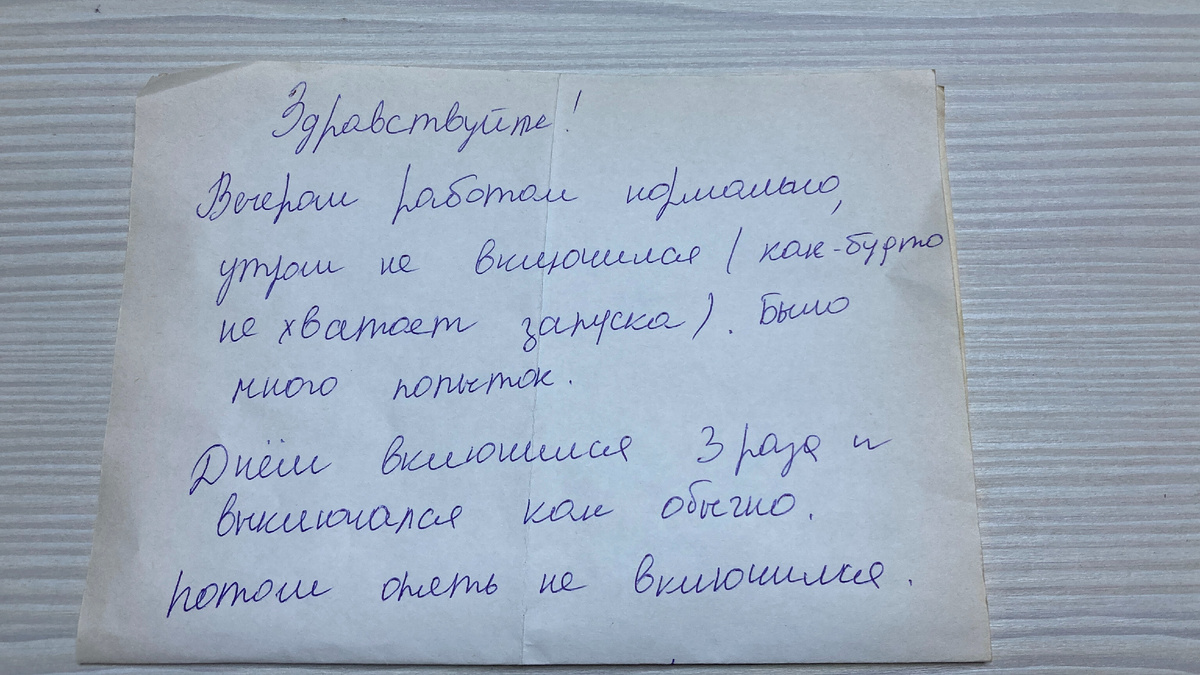 Здравствуйте!
Вечером работал нормально,
утром не включился (как-будто
не хватает запуска). Было
много попыток.
Днём включился 3 раза и
выключался как обычно.
Потом опять не включился.